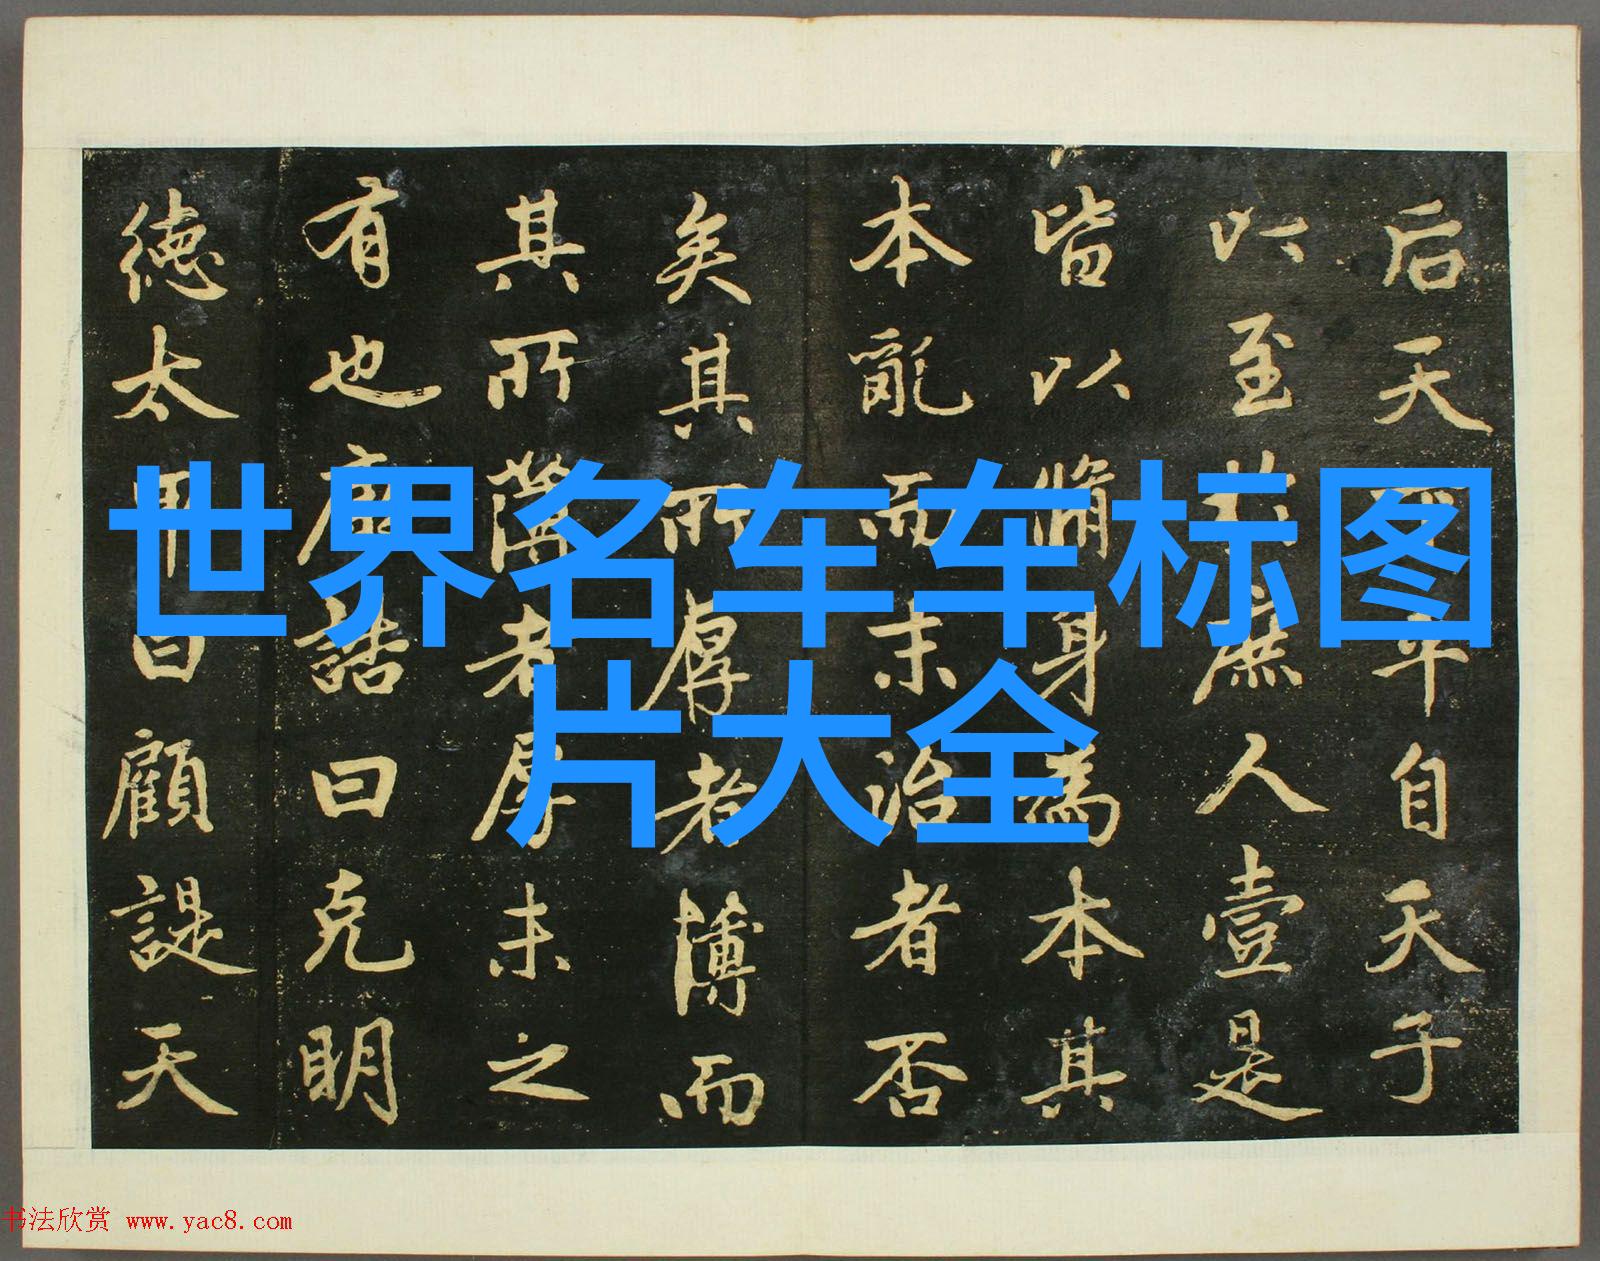 世界名车车标图
片大全
后天平自天子
以至於庶人壹是
皆以脩身為本其
本亂而末治者否
矣其所厚者薄而
其所薄者厚未之
有也康誥曰克明
德太甲曰顧諟天
书法欣赏 www.yac8.com